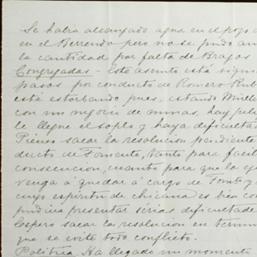 Se había alcanzado agua en el pozo
en el Berrendo pero no se pudo
la cantidad por falta de Bragas
Congregadas - Este asunto está
pasos por conducto de Romero Rub
está estorbando pues, estando
con un negocio de minas, hay
le llegue el soplo y haya dificultad
Pienso sacar la resolucion pendiente
ducto de Fomento, tanto para facil
consecucion, cuanto para que la
venga á quedar á cargo de
cuyo espíritu de chicana es bien con
pudiera presentar serias dificultade
Espero sacar la resolucion en termin
que se evite todo conflicto.
Politica Ha llegado un momento